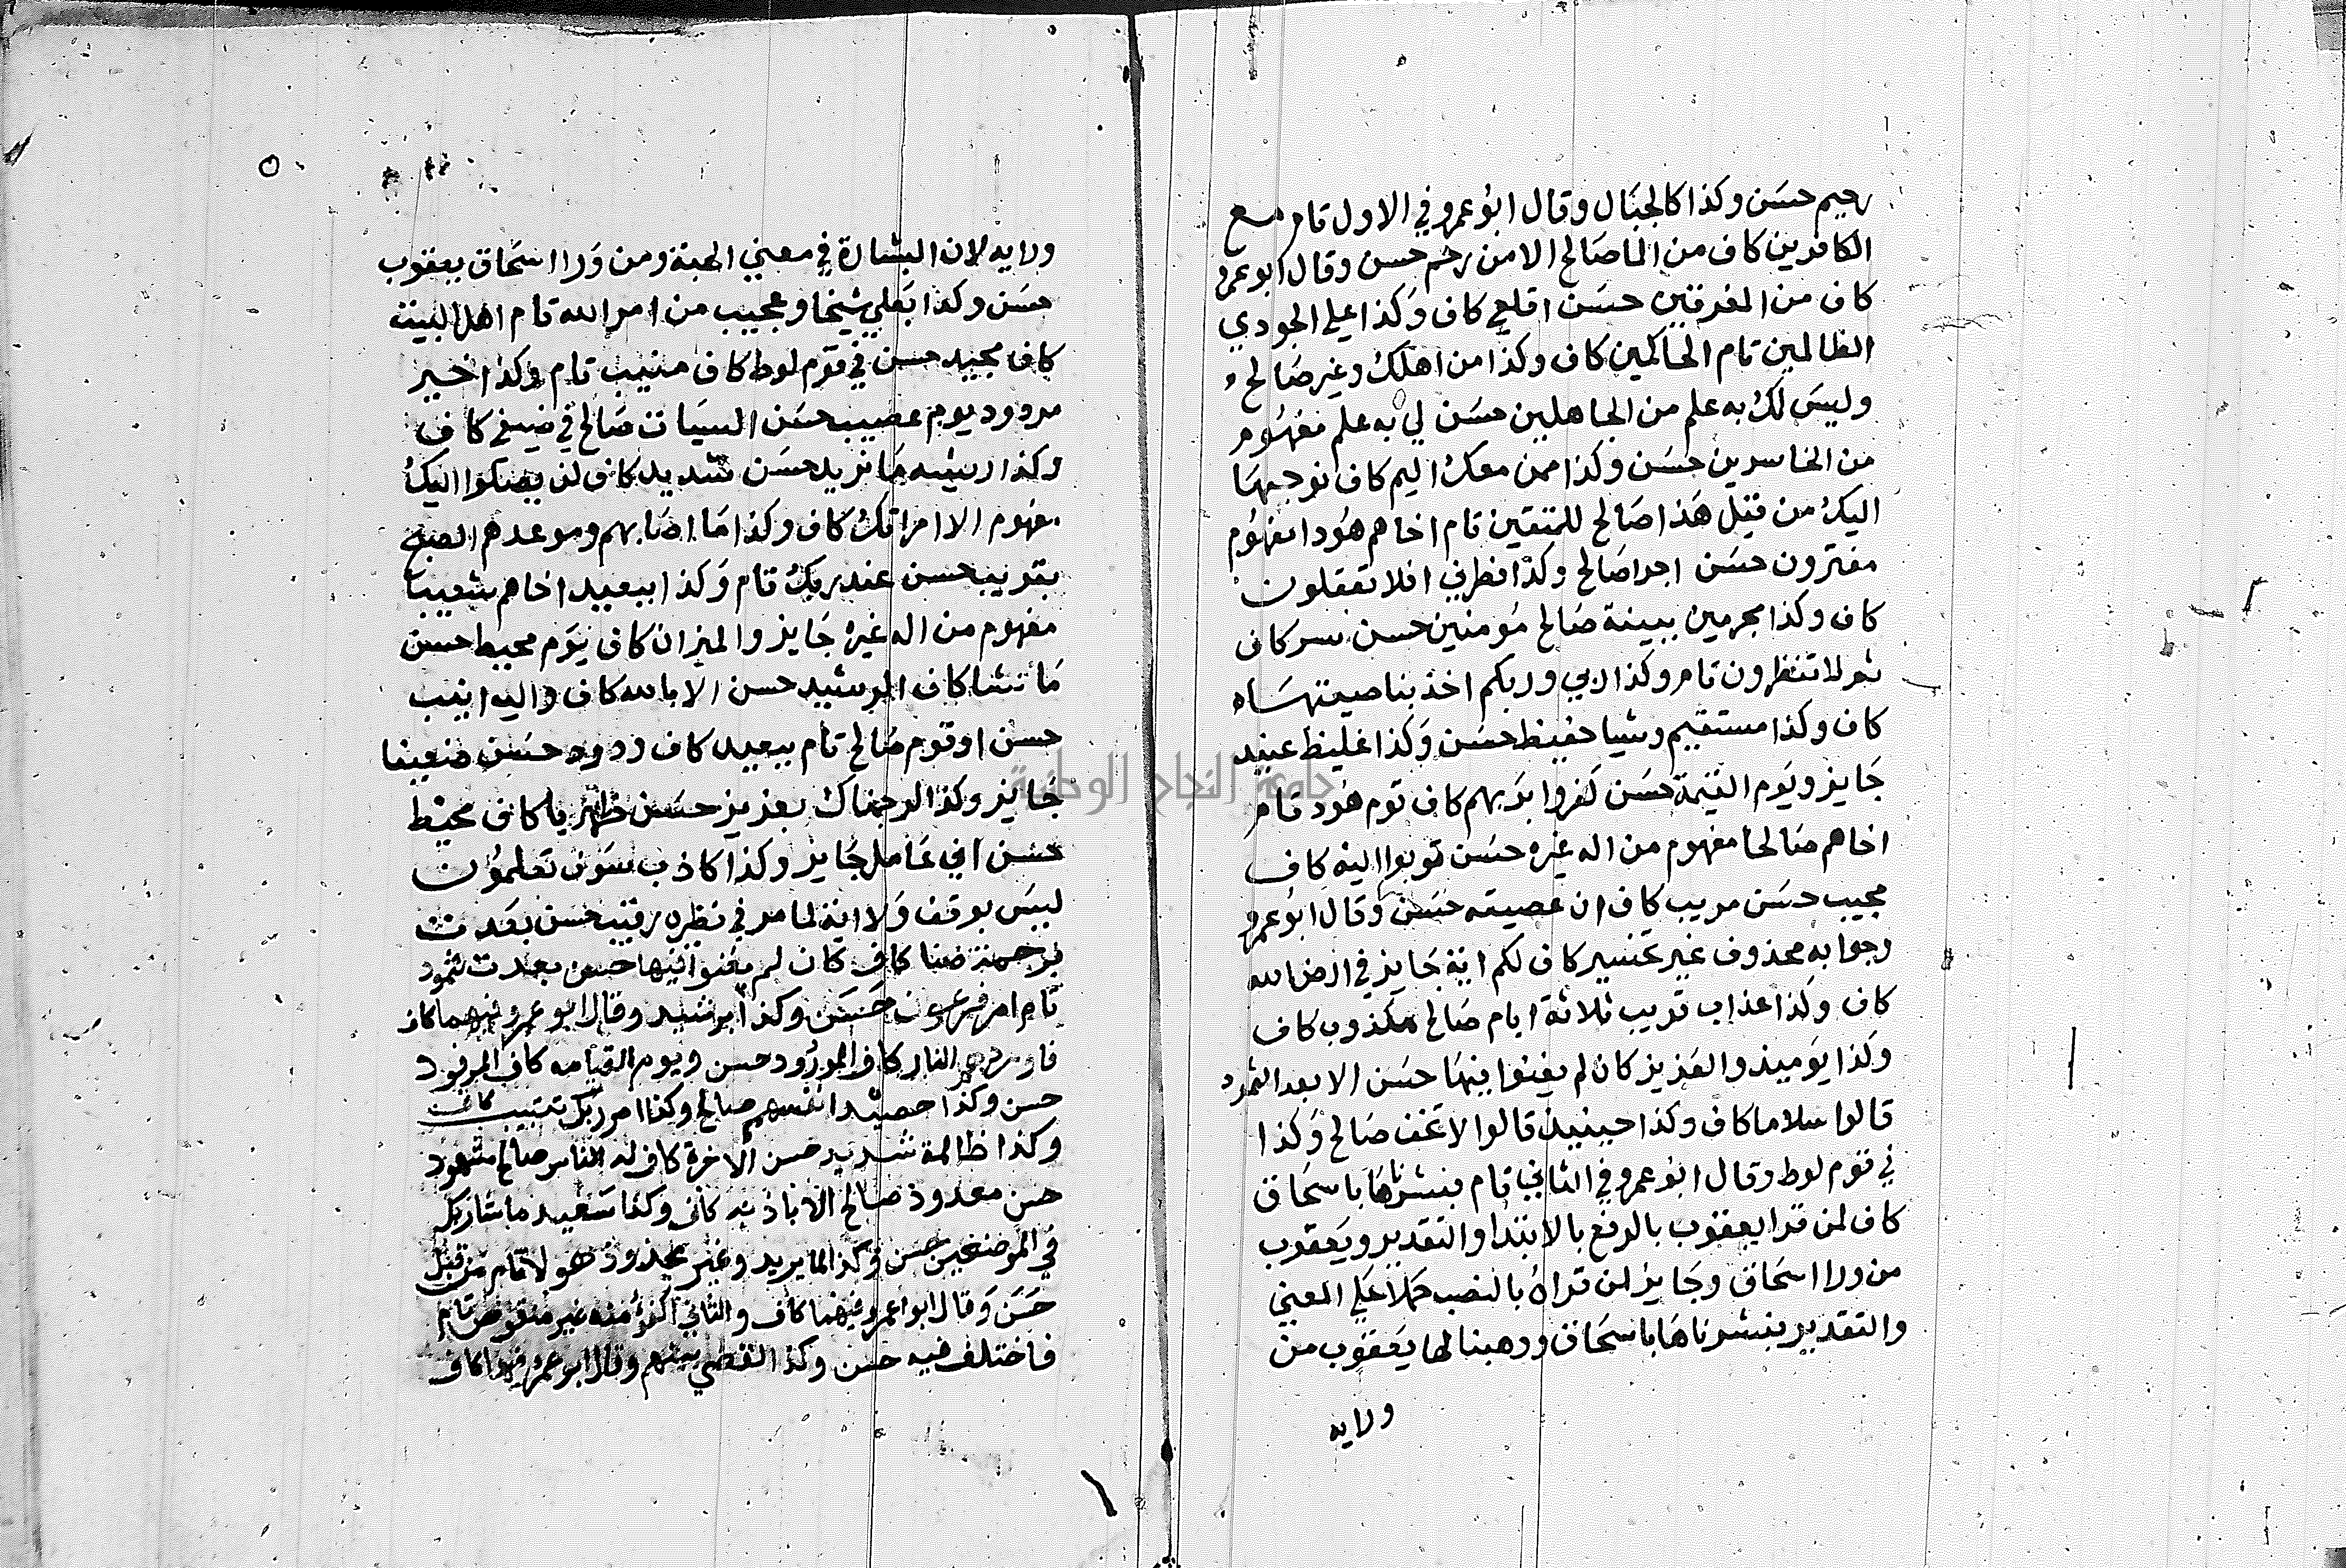 رحيم حسن وكذا كالجبال وقال ابو عمرو في الاول تام مع
الكافرين كاف من الما صالح الا من رحم حسن وقال ابو عمرو
كاف من المغرقين حسن اقلعي كاف وكذا علي الجودي
الظالمين تام الحاكمين كاف وكذا من اهلك وغير صالح
وليس لك به علم من الجاهلين حسن لي به علم مفهوم
من الخاسرين حسن وكذا ممن معك اليم كاف نوحيها
اليك من قبل هذا صالح للمتقين تام اخاهم هودا مفهوم
مفترون حسن اجرا صالح وكذا فطرني افلا تعقلون
كاف وكذا مجرمين ببينة صالح مومنين حسن بسو كاف
ثم لا تنظرون تام وكذا ربي وربكم اخذ بناصيتها
كاف وكذا مستقيم وشيا حفيظ حسن وكذا غليظ عنيد
جايز ويوم القيمة حسن كفروا بربهم كاف قوم هود تام
اخاهم صالحا مفهوم من اله غيره حسن توبوا اليه كاف
مجيب حسن مريب كاف ان عصيته حسن وقال ابو عمرو
وجوابه محذوف غير تخسير كاف لكم اية جايز في ارض الله
كاف وكذا عذاب قريب ثلاثة ايام صالح مكذوب كاف
وكذا يوميذ والعزيز كان لم يغنوا فيها حسن الا بعد الثمود
قالوا سلاما كاف وكذا حنيذ قالوا لا تخف صالح وكذا
في قوم لوط وقال ابو عمرو في الثاني تام بنشرناها باسحاق
كاف لمن قرا يعقوب بالرفع بالابتدا والتقدير ويعقوب
من ورا اسحاق وجايز لمن قراه بالنصب حملا علي المعني
والتقدير بنشرناها باسحاق ووهبنا لها يعقوب من
ورايه
ورايه لان البشارة في معني الهبة ومن ورا اسحاق يعقوب
حسن وكذا بعلي شيخا وعجيب من امر الله تام اهل البيت
كاف مجيد حسن في قوم لوط كاف منيب تام وكذا خير
مردود يوم عصيب حسن السيات صالح في ضيفي كاف
وكذا رشيد ما نريد حسن شديد كاف لن يصلوا اليك
مفهوم الا امراتك كاف وكذا ما اصابهم وموعدهم الصبح
بقريب حسن عند ربك تام وكذا ببعيد اخاهم شعيبا
مفهوم من اله غيره جايز والميزان كاف يوم محيط حسن
ما نشا كاف الرشيد حسن الا بالله كاف واليه انيب
حسن او قوم صالح تام ببعيد كاف ودود حسن ضعيفا
جايز وكذا لرجمناك بعزيز حسن ظهريا كاف محيط
حسن اني عامل جايز وكذا كاذب سوف تعلمون
ليس بوقف ولا اية لما مر في نظره رقيب حسن بعدت
برحمة منا كاف كان لم يغنوا فيها حسن بعدت ثمود
تام امر فرعون حسن وكذا برشيد وقال ابو عمرو فيهما كاف
فاوردهم النار كاف المورود حسن ويوم القيامه كاف المرفود
حسن وكذا حصيد انفسهم صالح وكذا امر ربك تتبيب كاف
وكذا ظالمة شديد حسن الاخرة كاف له الناس صالح مشهود
حسن معدود صالح الا باذنه كاف وكذا سعيد ما شا ربك
في الموضعين حسن وكذا لما يريد وغير مجذوذ هولا تام من قبل
حسن وقال ابو عمرو فيهما كاف والثاني اكفي منه غير منقوص تام
فاختلف فيه حسن وكذا لقضي بينهم وقال ابو عمرو فيهما كاف
جامعة النجاح الوطنية